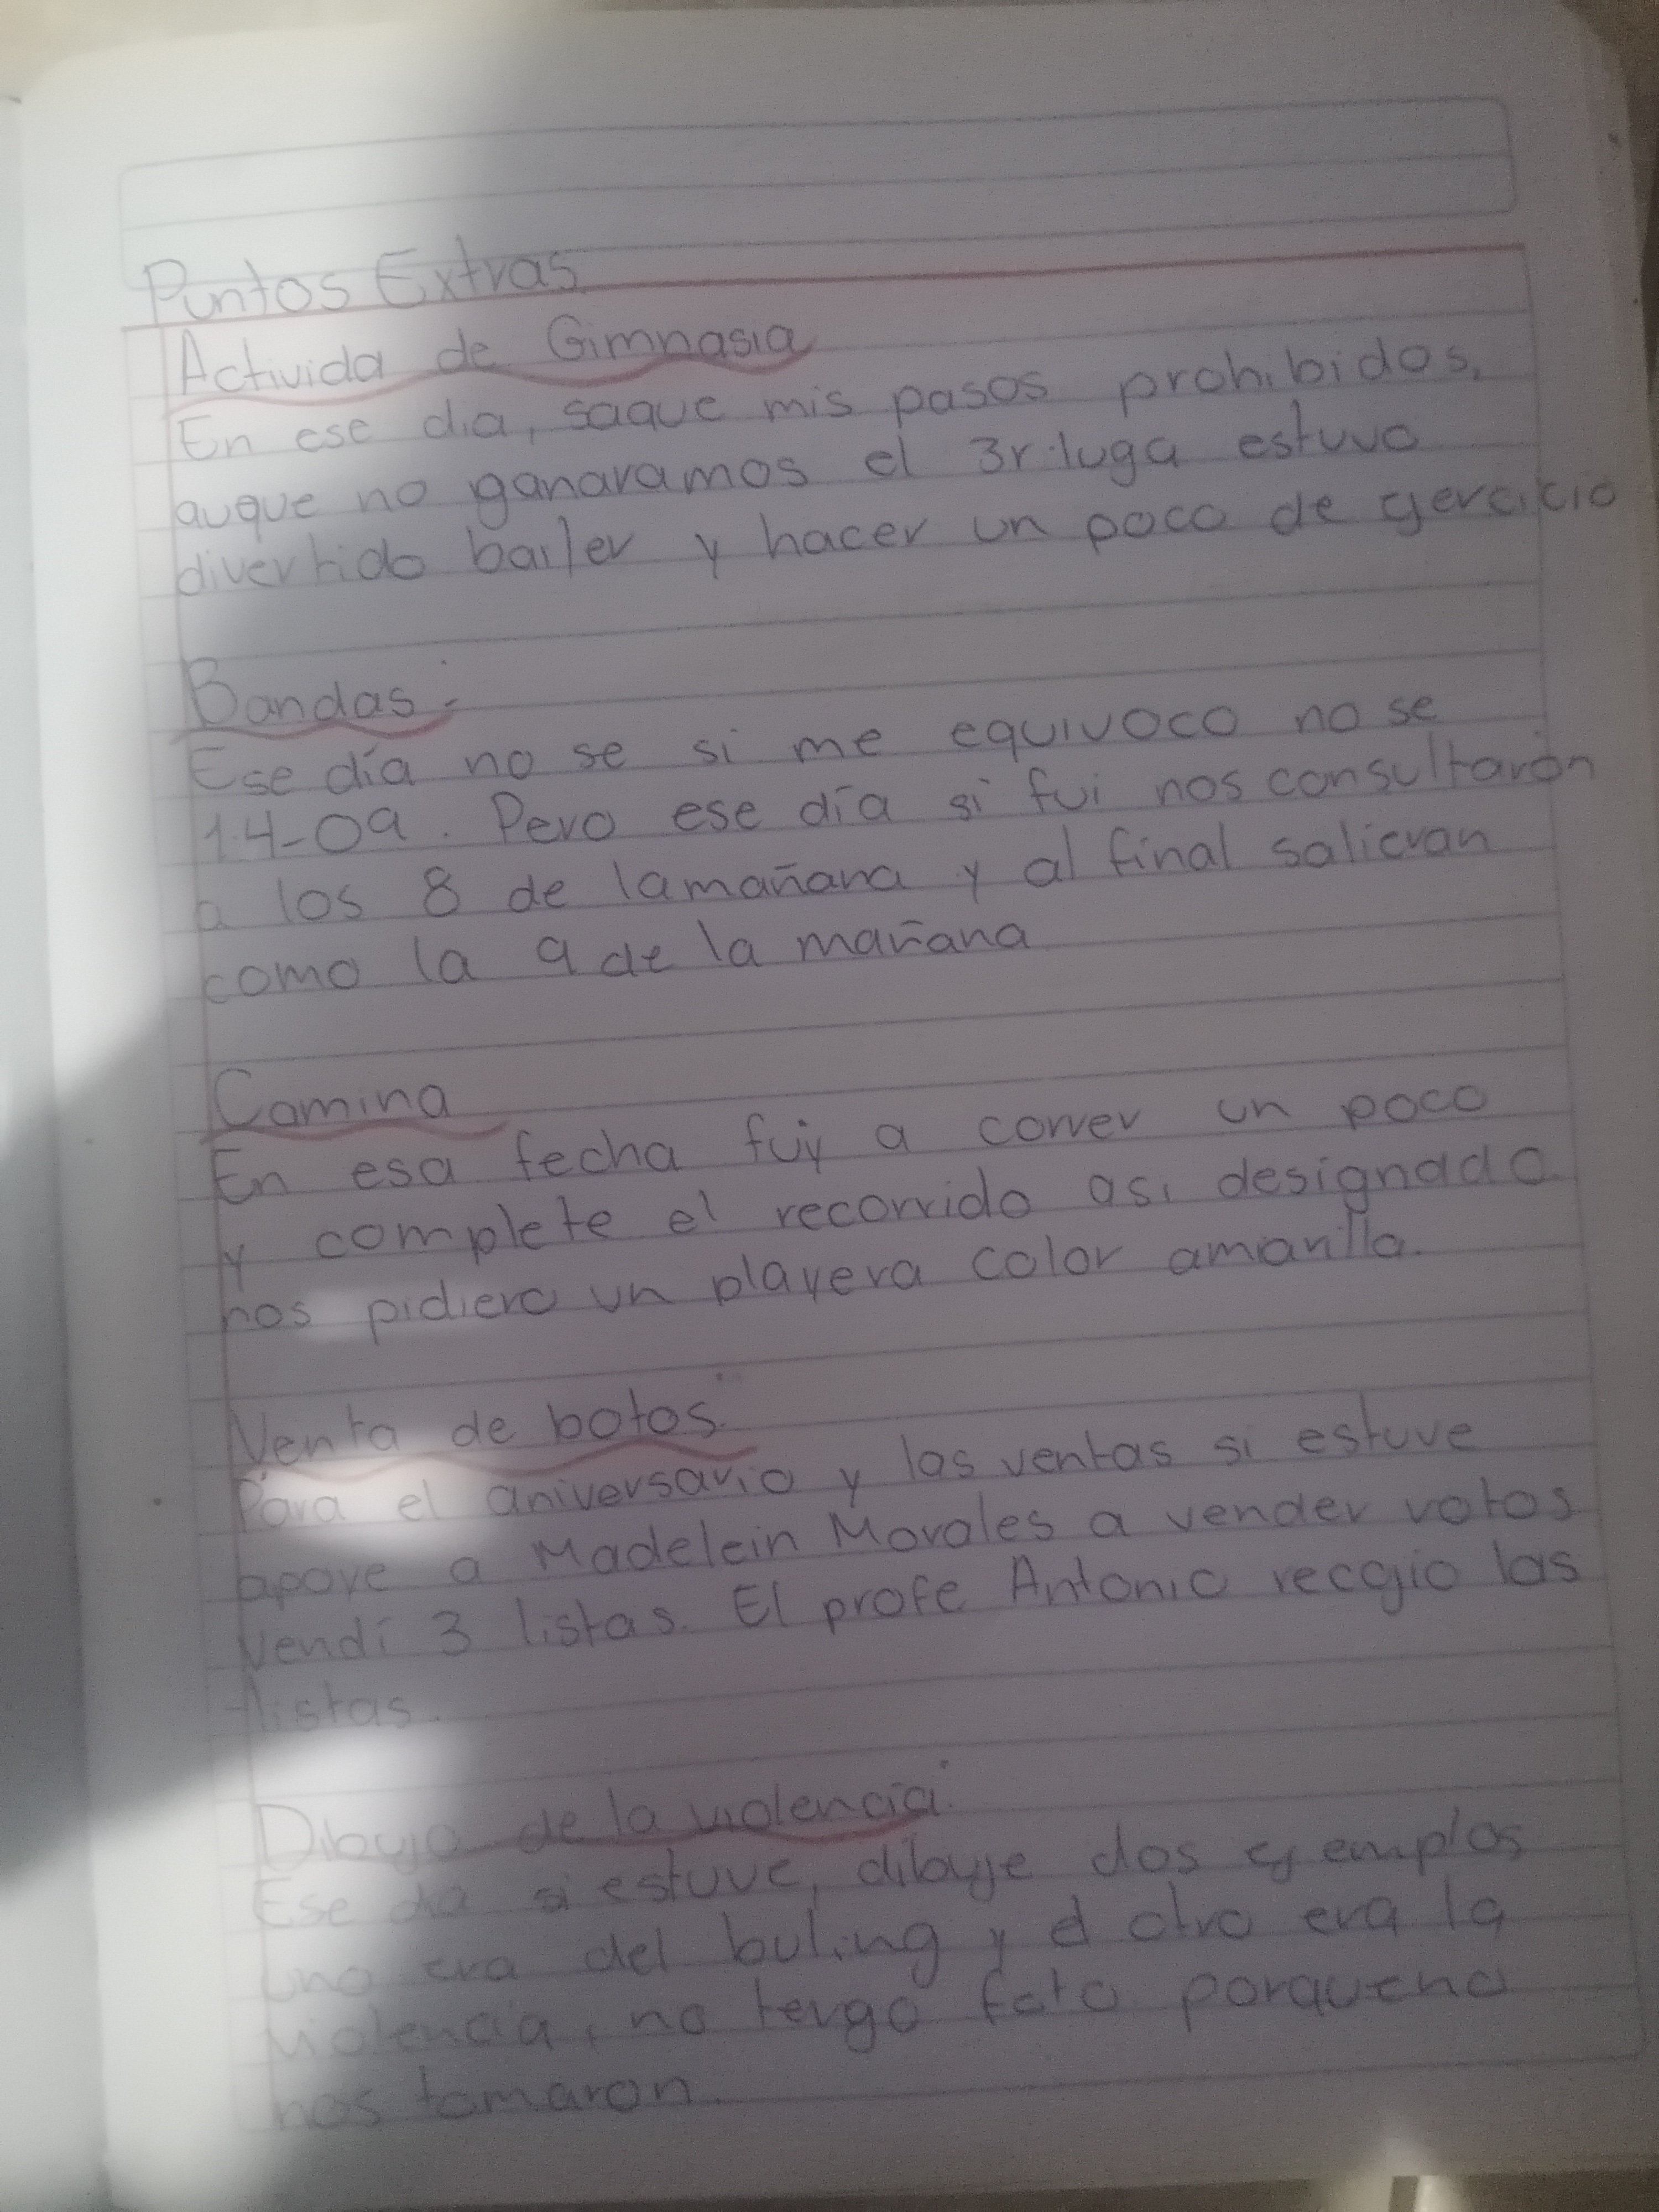 Puntos Extras
Activida de Gimnasia
En ese dia, saque mis pasos prohibidos,
auque no ganaramos el 3r luga estuvo
divertido bailer y hacer un poco de ejercicio
Bandas:
Ese día no se si me equivoco no se
14-09. Pero ese día si fui nos consultarón
a los 8 de la mañana y al final salieran
como la 9 de la mañana
Camina
En esa fecha fuy a correr un poco
y complete el recorrido asi designado
nos pidiero un playera color amarilla.
Venta de botos:
Para el aniversario y las ventas si estuve
apoye a Madelein Morales a vender votos
vendí 3 listas. El profe Antonio recgio las
listas.
Dibujo de la violencia:
Ese dia si estuve, dibuje dos ejemplos
uno era del buling y el otro era la
violencia, no tengo foto porque no
nos tomaron.